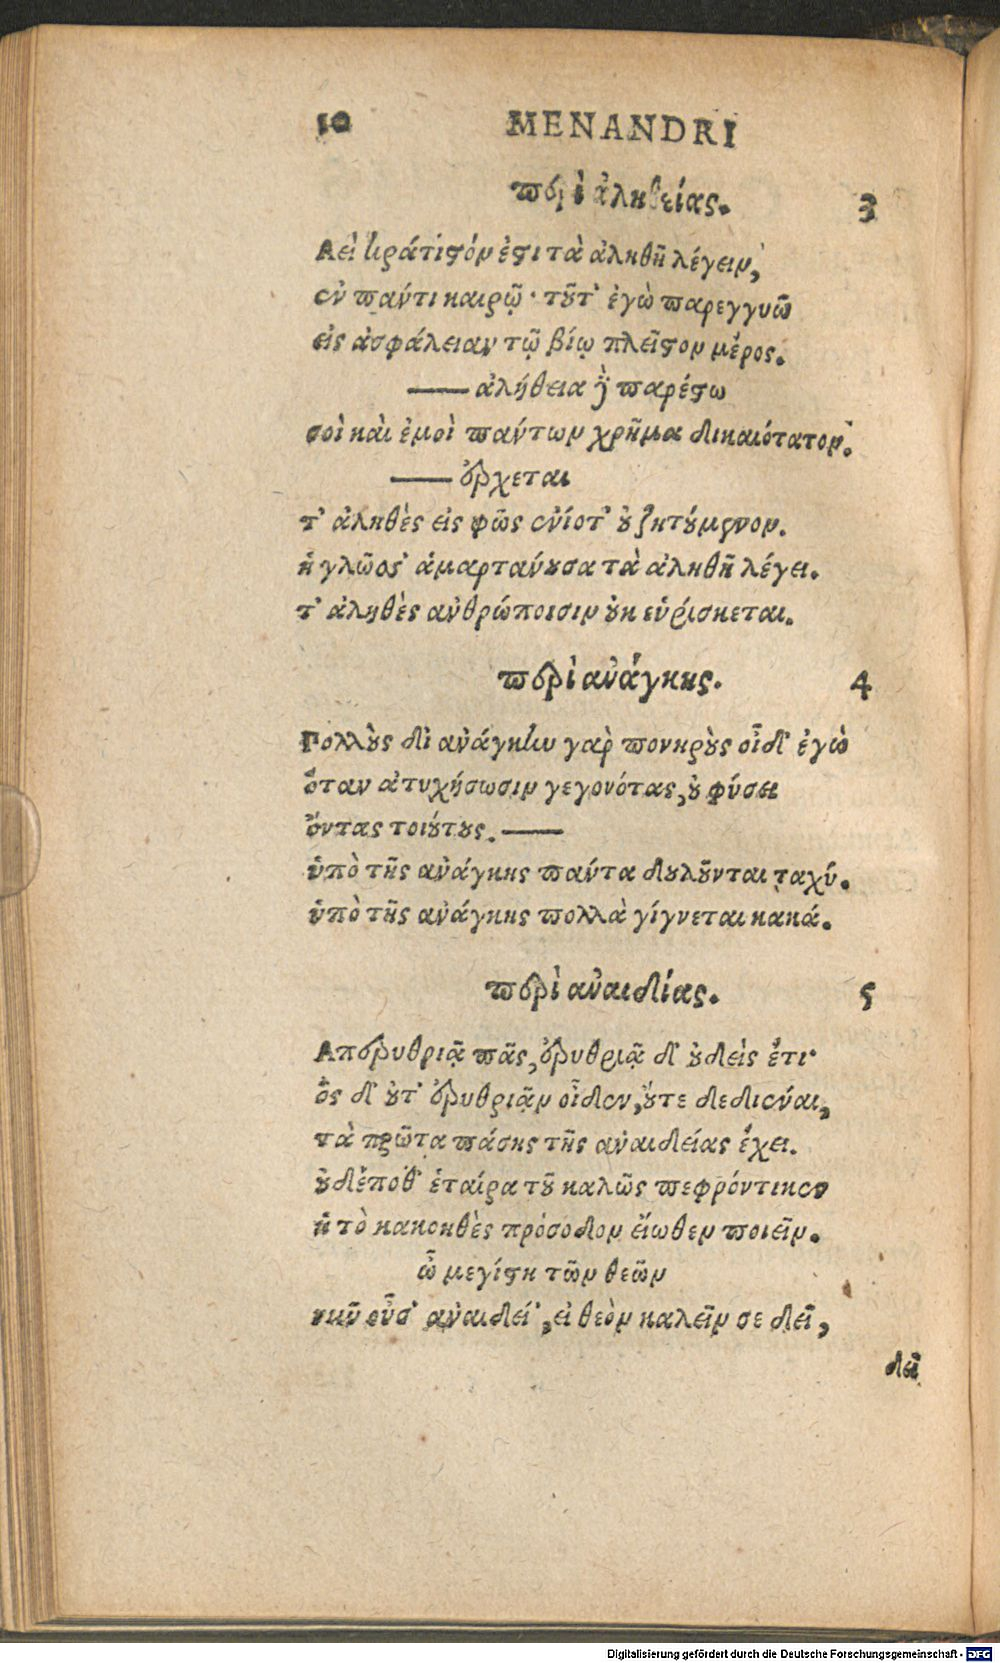 10 MENANDRI
περὶ ἀληθείας. 3
Αεὶ κράτιςόν ἐςι τὰ ἀληθῆ λέγειν,
ἐν παντὶ καιρῷ· τȣ͂τ' ἐγὼ παρεγγυῶ
εἰς ἀσφάλειαν τῷ βίῳ πλεῖςον μέρος.
—— ἀλήθεια ἣ παρέςω
σοὶ καὶ ἐμοὶ πάντων χρῆμα δικαιότατον.
—— ἔρχεται
τ' ἀληθὲς εἰς φῶς ἐνίοτ' ȣ̓ ζητȣ́μενον.
ἡ γλῶσσ' ἁμαρτάνȣσα τὰ ἀληθῆ λέγει.
τ' ἀληθὲς ἀνθρώποισιν ȣ̓κ εὑρίσκεται.
περὶ ἀνάγκης. 4
Πολλȣ̀ς δι' ἀνάγκην γὰρ πονηρȣ̀ς οἶδ' ἐγὼ
ὅταν ἀτυχήσωσιν γεγονότας, ȣ̓ φύσει
ὄντας τοιȣ́τȣς. ——
ὑπὸ τῆς ἀνάγκης πάντα δȣλȣ͂νται ταχύ.
ὑπὸ τῆς ἀνάγκης πολλὰ γίγνεται κακά.
περὶ ἀναιδίας. 5
Απερυθριᾷ πᾶς, ἐρυθριᾷ δ' ȣ̓δεὶς ἔτι·
ὃς δ' ȣ̓τ' ἐρυθριᾷν οἶδεν, ȣ̓́τε δεδιέναι,
τὰ πρῶτα πάσης τῆς ἀναιδείας ἔχει.
ȣ̓δέποθ' ἑταίρα τȣ͂ καλῶς πεφρόντικεν
ἣ τὸ κακοηθὲς πρόσοδον εἴωθεν ποιεῖν.
ὦ μεγίςη τῶν θεῶν
νῦν οὖσ' ἀναιδεί', εἰ θεὸν καλεῖν σε δεῖ,
δεῖ
Digitalisierung gefördert durch die Deutsche Forschungsgemeinschaft - DFG